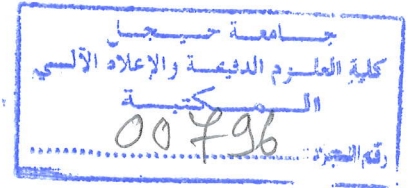 جامعة جيجل
كلية العلوم الدقيقة والإعلام الآلي
المكتبة
رقم الجرد: 00796